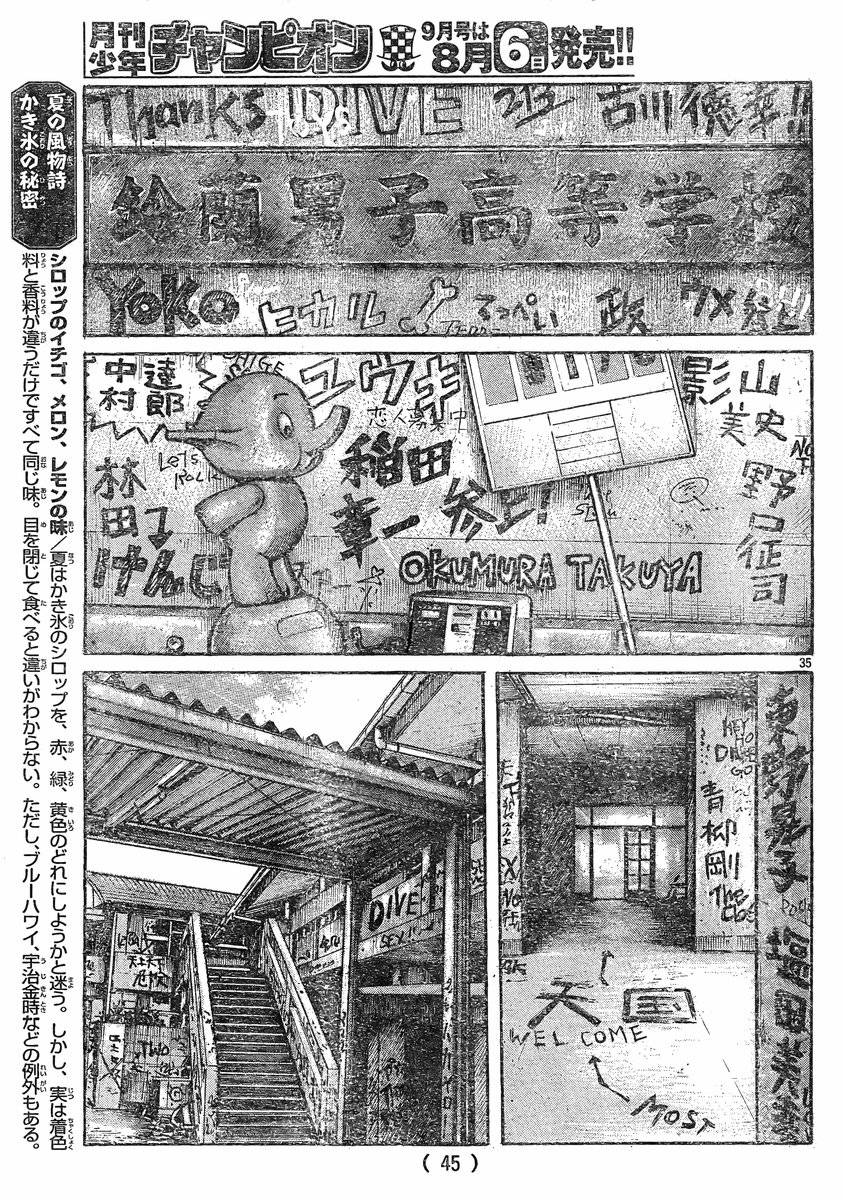 月刊少年チャンピオン 9月号は8月6日発売!!
夏の風物詩
かき氷の秘密
シロップのイチゴ、メロン、レモンの味/夏はかき氷のシロップを、赤、緑、黄色のどれにしようかと迷う。しかし、実は着色
料と香料が違うだけですべて同じ味。目を閉じて食べると違いがわからない。ただし、ブルーハワイ、宇治金時などの例外もある。
Thanks DIVE 213 古川徳幸!!
鈴蘭男子高等学校
Yoko ヒカル てっぺい 政 ウメ
ユウキ
中村 達郎
恋人募集中
Let's Rock
稲田章一 参上!
影山
美史
野口征司
林
田
けんじ
OKUMURA TAKUYA
35
DIVE
SEX
TWO
天上天下
青柳剛
The
天国
WELCOME
MOST
( 45 )